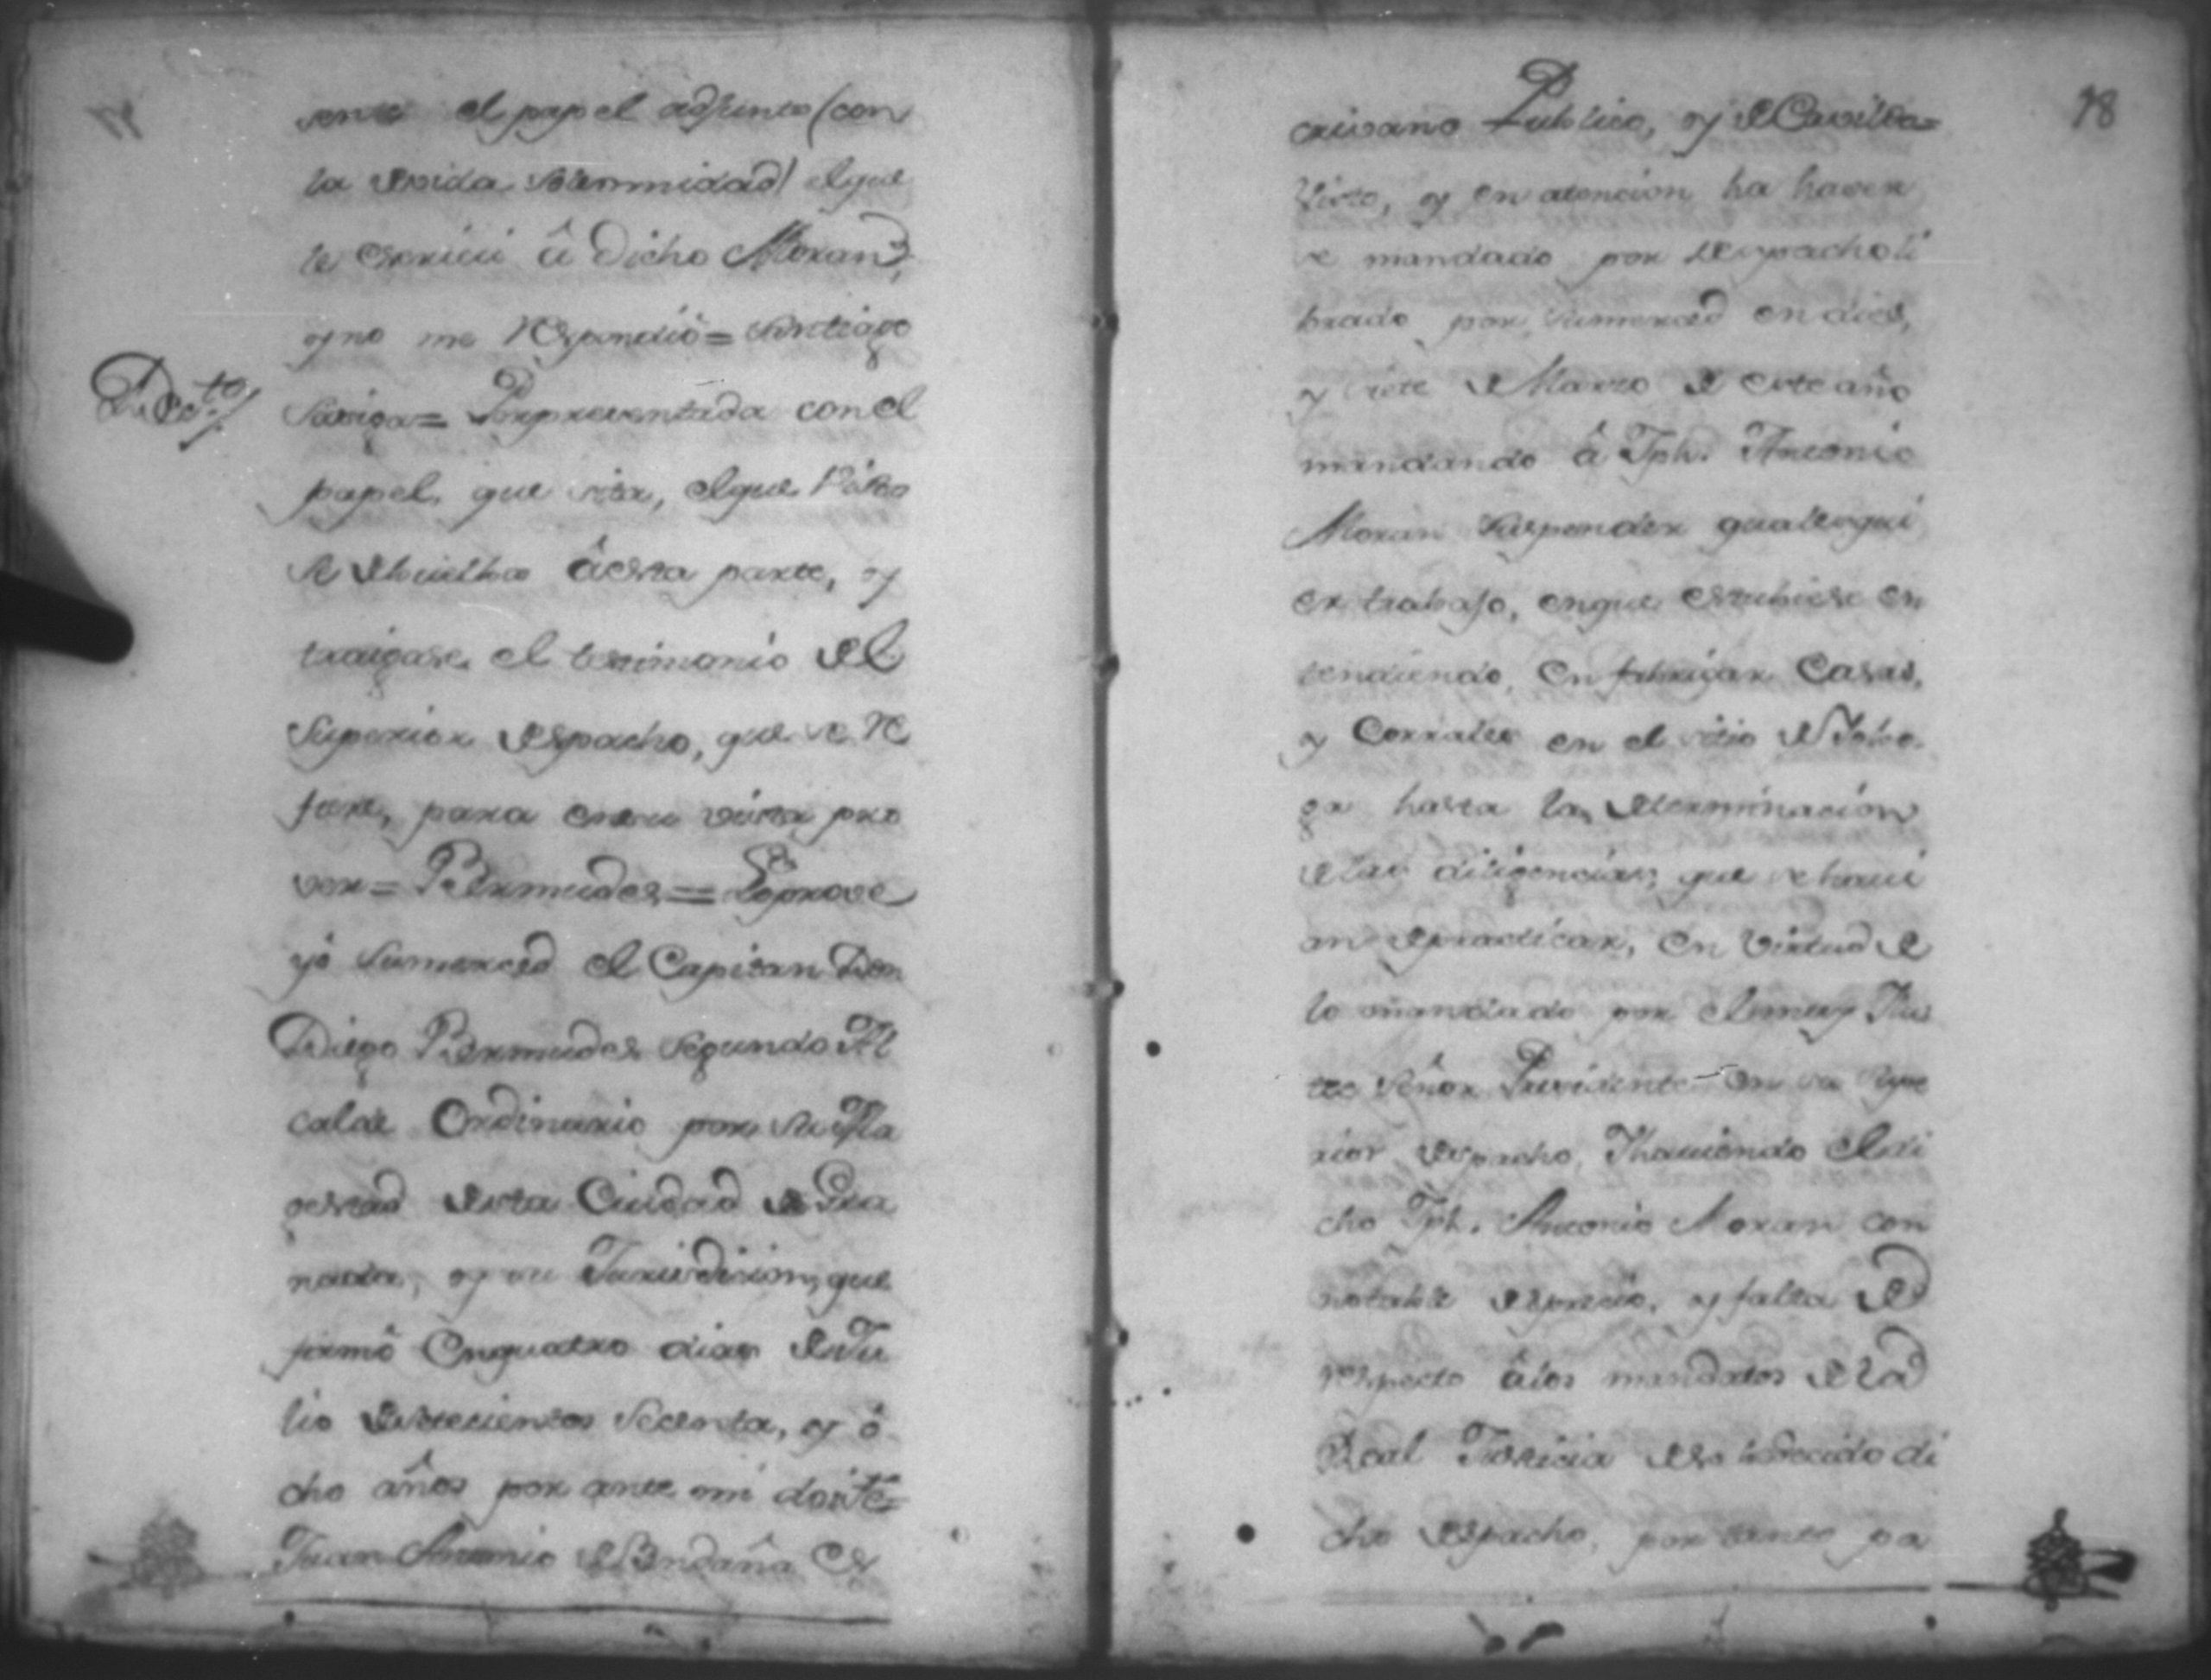 sente el papel adjunto (con
la devida solemnidad) el que
le escrivi â dicho Moran,
y no me respondiô = Santiago
Saviga = Por presentada con el
Decto/
papel, que sita, el que visto
se debuelba â esta parte, y
traigase el testimonio del
Superior despacho, que se re
fiere, para en su vista pro
ver = Bermudes = Lo prove
yô Sumerced el Capitan Don
Diego Bermudes segundo Al
calde Ordinario por su Ma
gestad desta Ciudad de Gra
nada, y su Jurisdicion, que
firmô en quatro dias de Ju
lio de setecientos secenta, y ô
cho años por ante mi doi fê =
Juan Antonio de Bendaña Es
78
crivano Publico, y de Cavildo =
Visto, y en atencion ha haver
se mandado por despacho li
brado por Sumerced en dies,
y siete de Marzo de este año
mandando â Jph. Antonio
Moran suspender qualesqui
er trabajo, en que estubiese en
tendiendo, en fabricar Casas,
y Corrales en el sitio de
ga hasta la determinacion
de las diligencias, que se havi
an de practicar, en virtud de
lo mandado por el muy Ilus
tre Señor Presidente en su Supe
rior despacho, Y haviendo el di
cho Jph. Antonio Moran con
notable desprecio, y falta de
respecto â los mandatos de la
Real Justicia desobedecido di
cho despacho, por tanto pa